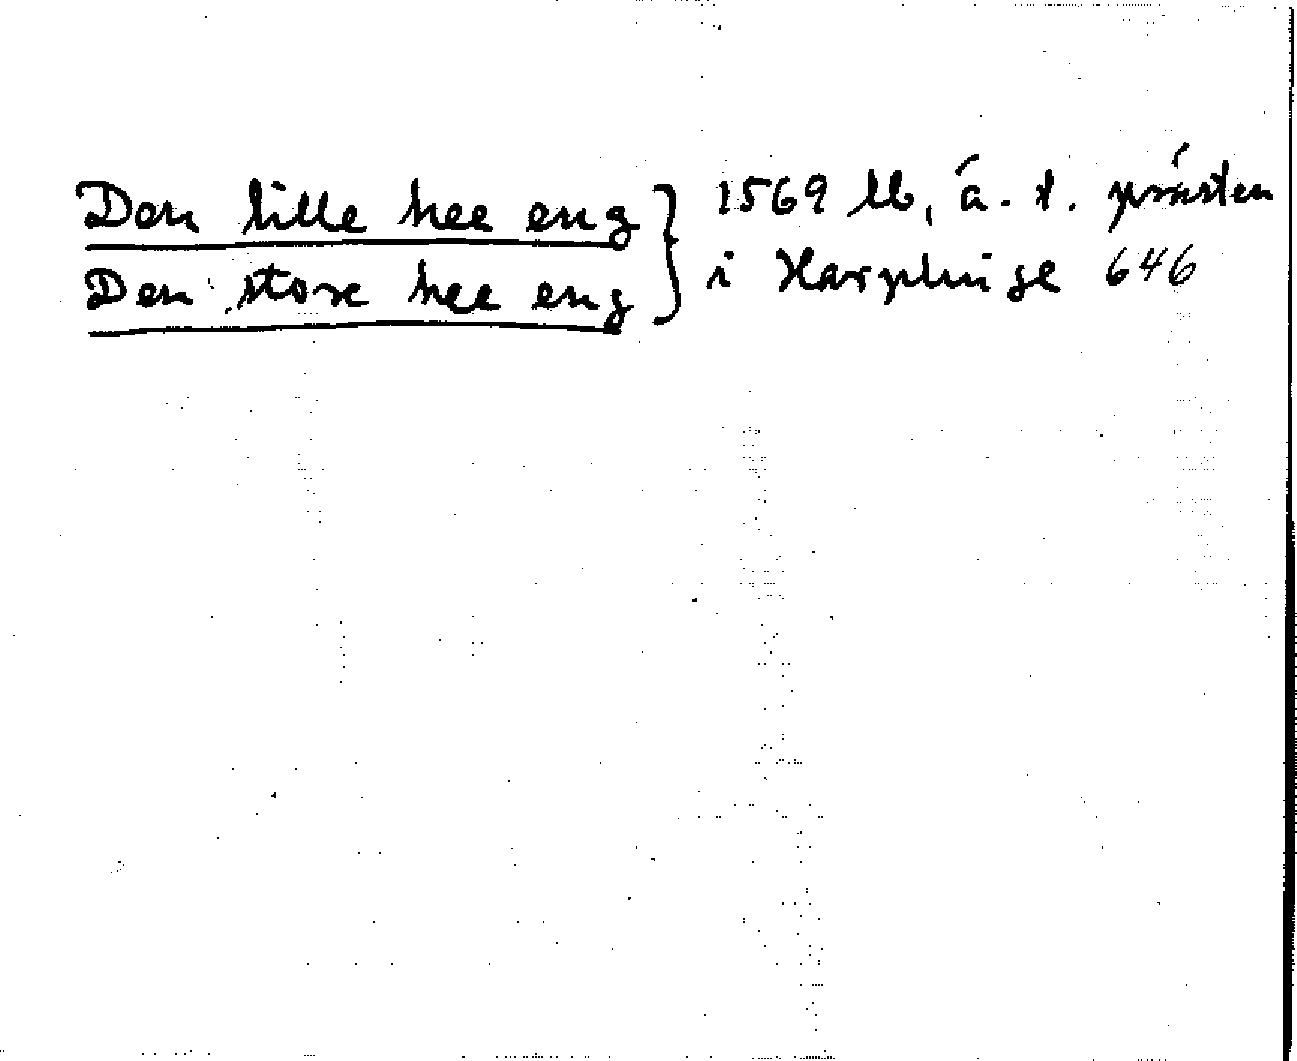 Den lille hee eng } 1569 lb, ä. t. prästen
Den store hee eng } i Harplinge 646